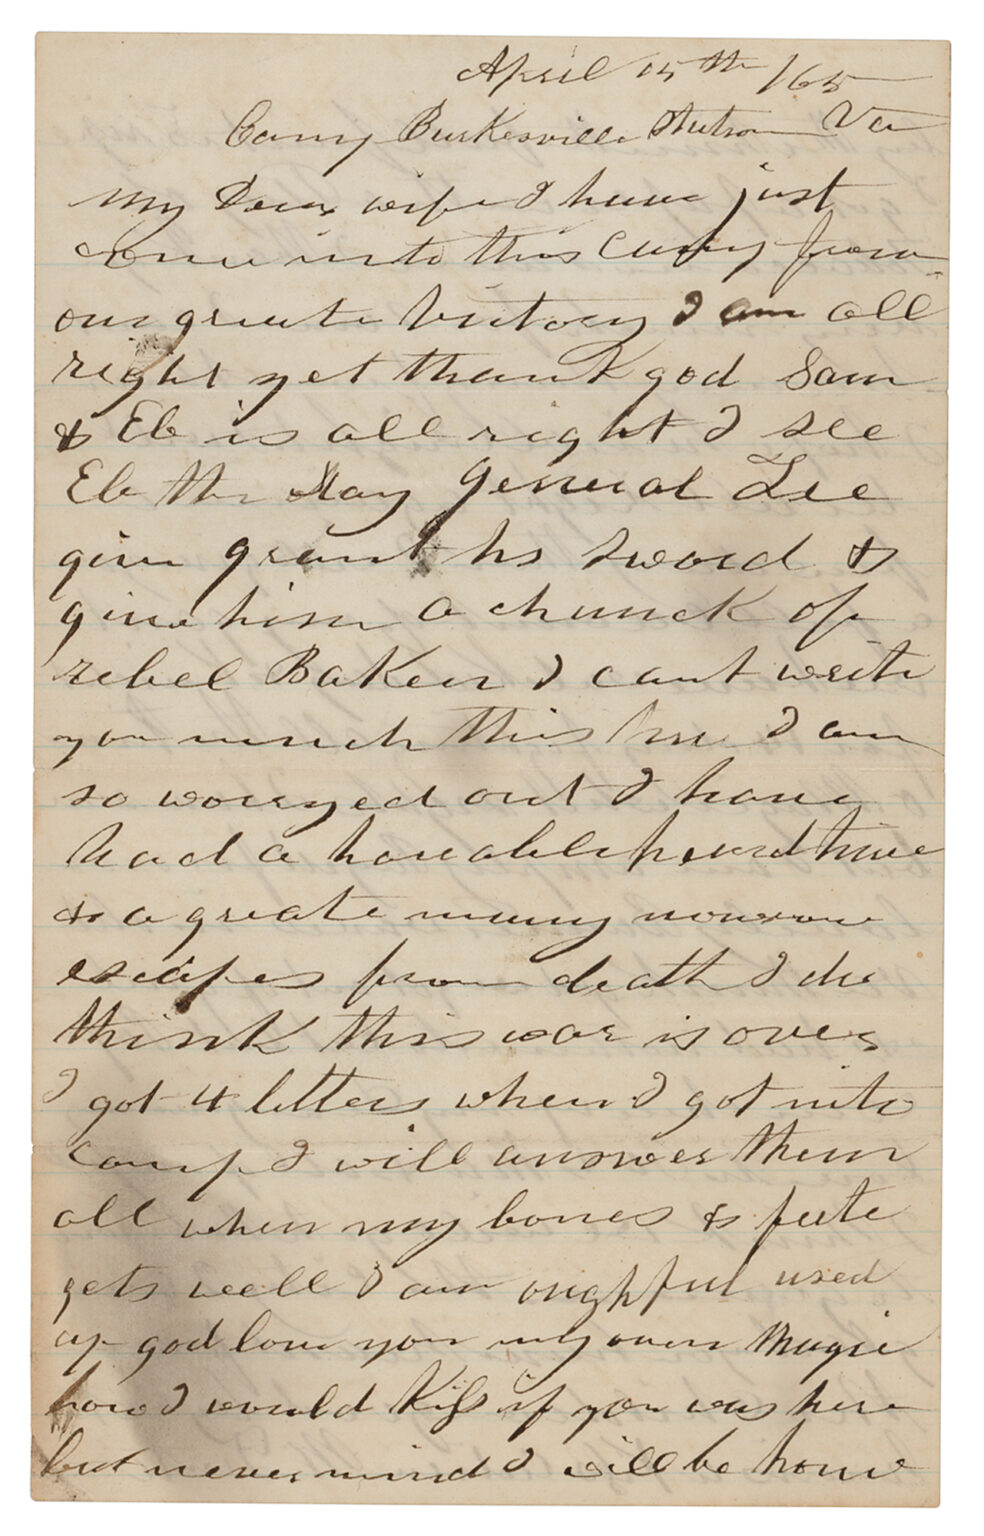 April 15th /65
Camp Burkesville Station Va
My Dear wife I have just
come into this Camp from
our greate victory I am all
right yet thank god Sam
& Eb is all right I see
Eb the day general Lee
give grant his sword &
give him a chunck of
rebel Baken I cant write
you much this time I am
so worryed out I have
had a horable hard time
& a greate many narrow
escapes from death I do
think this war is over
I got 4 letters when I got into
camp I will answer them
all when my bones & feete
gets well I am used
up god love you my own Magie
how I would Kiss if you was here
but never mind I will be home